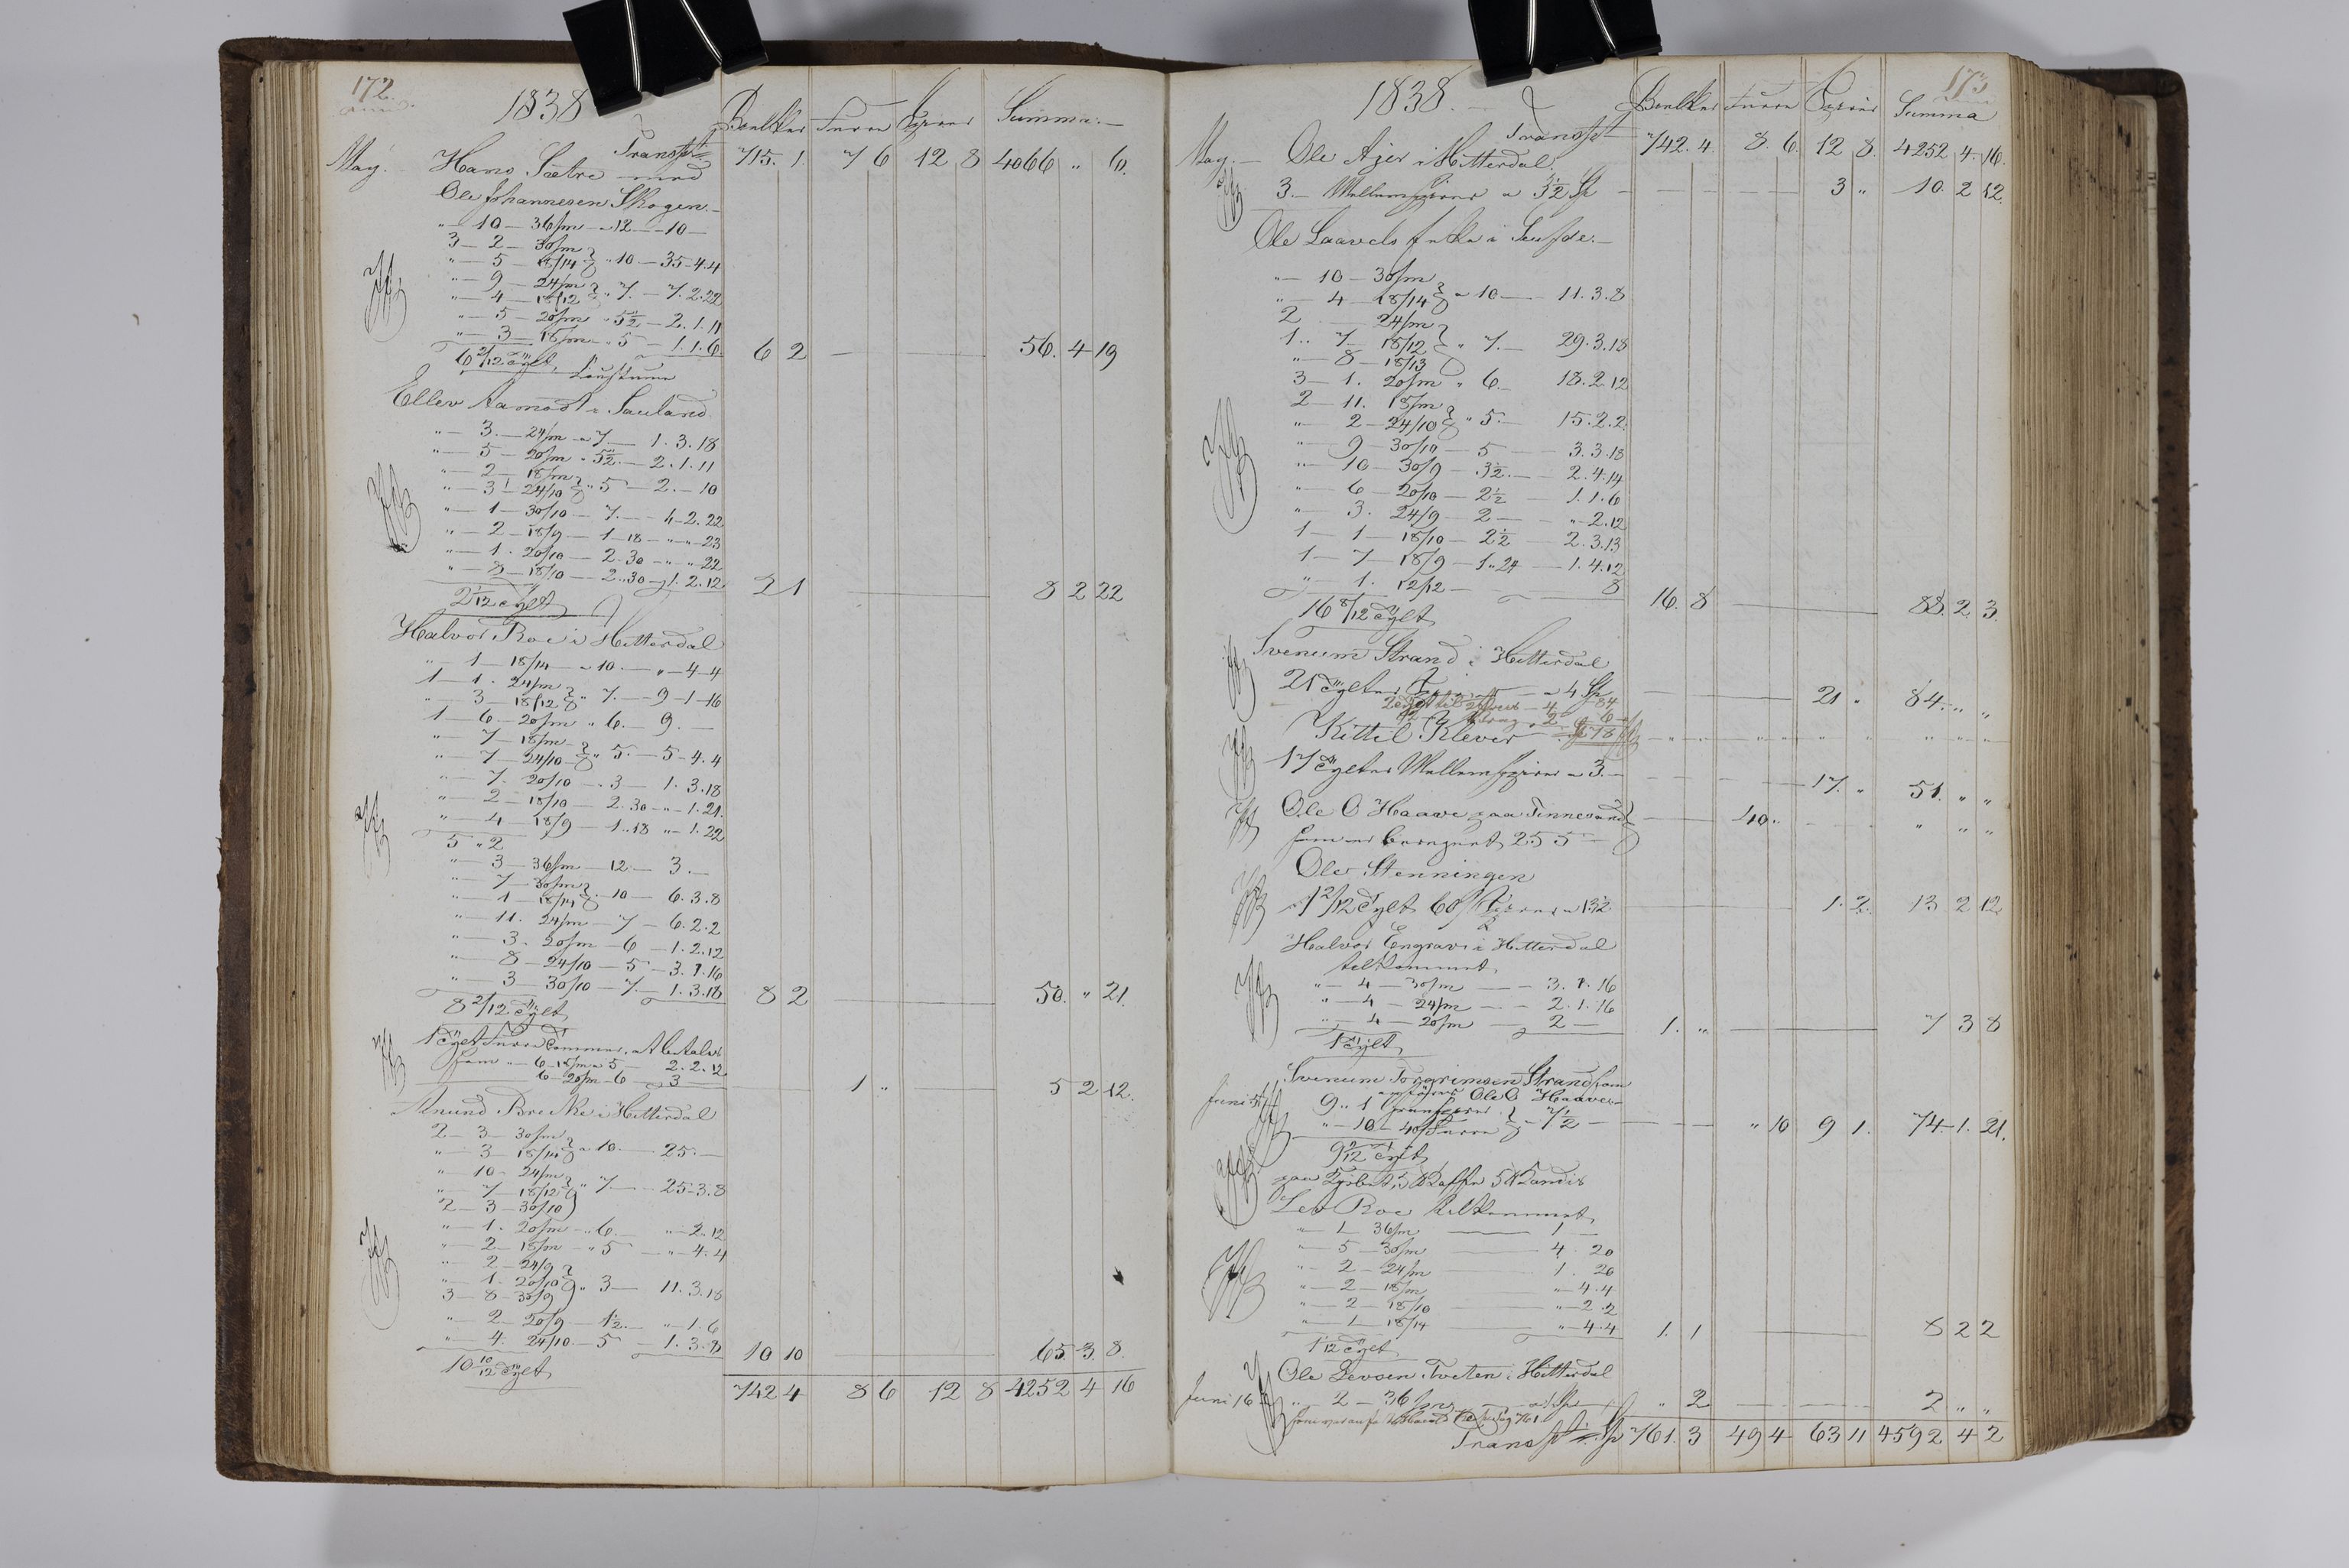 172.
1838
Boelker Furre Spirer Summa.
Transpt 715. 1. 7 6 12 8 4066 " 6.
May. Hans Sætre med
Ole Johannesen Skogen.
" 10 — 36/m — 12 — 10 —
3 — 2 — 30/m
" — 5 — 18/14 " 10 — 35-4.4
" — 9 — 24/m
" — 4 — 18/12 " 7. — 7. 2.22
" — 5 — 20/m " 5½ — 2. 1. 11
" — 3 — 18/m " 5 — 1. 1. 6
6 2/12 Tylt, 6 2 56. 4 19
Ellev Aamodt i Sauland.
" — 3. — 24/m — 7 — 1. 3. 18
" — 5 — 20/m " 5½ — 2. 1. 11
" — 2 — 18/m
" — 3 — 24/10 " 5 — 2. — 10
" — 1 — 30/10 — 7. — 4-2. 22
" — 2 — 18/9 — 1-18 — " — " — 23
" — 1. 20/10 — 2.30 — " — " 22
" — 8 — 18/10 — 2.30 — 1. 2. 12
2 1/12 Tylt 2 1 8 2 22
Halvor Roe i Hitterdal
" 1 — 18/14 — 10. — " — 4 — 4
1 — 1. 24/m
" — 3 — 18/12 " 7. — 9 — 1 — 16
1 — 6 — 20/m " 6. — 9. —
" — 7 — 18/m
" — 7 — 24/10 " 5. — 5 — 4. 4
" — 7. 20/10 — 3 — 1. 3. 18
" — 2 — 18/10 — 2.30 — " — 1. 21.
" — 4 — 18/9 — 1..18 " — 1. 22
5 " 2
" — 3 — 36/m — 12 — 3. —
" — 7 — 30/m
" — 1 — 18/14 — 10 — 6. 3. 8
" — 11. 24/m — 7 — 6. 2. 2
" — 3. 20/m — 6 — 1. 2. 12
" — 8 — 24/10 — 5 — 3. 1. 16
" — 3 — 30/10 — 7. — 1. 3. 18
8 2/12 Tylt 8 2 50. " 21.
1 Tylt Furre
" 6 — 18/m a 5 — 2. 2. 12
6 — 20/m — 6 — 3 —
1 " 5 2 12.
Amund Brekke i Hitterdal
2 — 3 — 30/m
" — 3 — 18/14 " 10. — 25. —
" — 10 — 24/m
" — 7 — 18/12 " 7 — 25-3. 8
2 — 3 — 30/10
" — 1. 20/m — " 6. — " — 2. 12
" — 2 — 18/m — " 5 — " — 4. 4
" — 2 — 24/9
" — 1. 20/10 " 3 — 11. 3. 18
3 — 8 — 30/9
" — 2 — 20/9 — 1½. — " — 1. 6
" — 4. 24/10 — 5 — 1. 3. 8
10 10/12 Tylt 10 10 65. 3. 8
742 4 8 6 12 8 4252 4 16
173
1838.
Boelker Furre Spirer Summa
Transpt 742. 4. 8. 6. 12 8. 4252 4. 16.
May. — Ole Ajer i Hitterdal.
3. — Mellemspirer a 3½ Sp 3 " 10. 2 12.
Ole Laavels i
" — 10 — 30/m
" — 4 — 18/14 " 10 — 11. 3. 8
2 — 24/m
1.. 7 — 18/12 " 7. — 29. 3. 18
" — 8 — 18/13
3 — 1. 20/m " 6. — 18. 2. 12
2 — 11. 18/m
" — 2 — 24/10 " 5. — 15. 2. 2.
" — 9 — 30/10 — 5 — 3. 3. 18
" — 10 — 30/9 — 3½. — 2. 4. 14
" — 6 — 20/10 — 2½ — 1. 1. 6
" — 3. 24/9 — 2 — " — 2. 12
1 — 1 — 18/10 — 2½ — 2. 3. 13
1 — 7 — 18/9 — 1..24 — 1. 4. 12
" 1. 12/12 — 8
16 8/12 Tylt 16. 8 88. 2. 3.
Svenum Strand i Hitterdal
21 Tylter a 4 Sp 21 " 84. " "
Kittel Klever
17 Tylter Mellemspirer a 3. — 17. " 51. " "
Ole O Haave paa Tinnesand 40. " " "
som er beregnet 255
Ole Stenningen
1 2/12 Tylt 60/ Spirer a 13½ 1. 2. 13 2 12
Halvor Engrav i Hitterdal
tilkommet
" — 4 — 30/m — 3. 1. 16
" — 4 — 24/m — 2. 1. 16
" — 4 — 20/m — 2 —
1 Tylt 1. " 7 3 8
Svenum Torgrimsen Strand som
Juni Ole O Haave
9.. 1
" — 10 — 40/Furre 7½ " 10 9 1. 74. 1. 21.
Tylt
5 Kaffe 5 Kandis
Lev Roe tilkommet
" 1 36/m — 1 —
" — 5 — 30/m — 4. 20
" — 2 — 24/m — 1. 20
" — 2 — 18/m — " — 4. 4
" — 2 — 18/10 — " — 2. 2
" — 1 — 18/14 — " — 4. 4
1 1/12 Tylt 1. 1 8 2 2
Ole Levsen Tveten i Hitterdal
Juni 16 " — 2 — 36/m " 2 2 " "
Transpt Sp 761. 3 49 4 63 11 4592 4 2